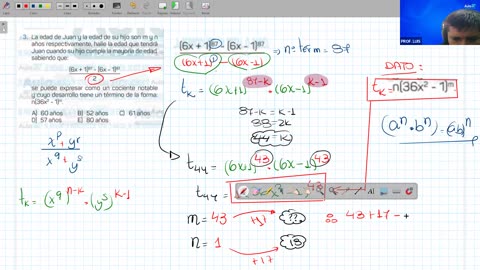 3. La edad de Juan y la edad de su hijo son m y n
años respectivamente, halle la edad que tendrá
Juan cuando su hijo cumple la mayoría de edad,
sabiendo que:
(6x + 1)⁸⁷ - (6x - 1)⁸⁷
2
se puede expresar como un cociente notable
y cuyo desarrollo tiene un término de la forma:
n(36x² - 1)ᵐ
A) 60 años B) 52 años C) 61 años
D) 57 años E) 80 años
(6x + 1)⁸⁷ - (6x - 1)⁸⁷
(6x+1) - (6x-1)
=> n=term = 87
tₖ = (6x+1)⁸⁷⁻ᵏ · (6x-1)ᵏ⁻¹
87-k = k-1
88=2k
44=k
t₄₄ = (6x+1)⁴³ (6x-1)⁴³
t₄₄ =
m = 43
+17
??
n = 1
+17
18
43+17 =
DATO:
tₖ= n(36x² - 1)ᵐ
(aⁿ.bⁿ) = (ab)ⁿ
xᵖ + yʳ
x^q + yˢ
tₖ = (x^q)ⁿ⁻ᵏ · (yˢ)ᵏ⁻¹
PROF. LUIS